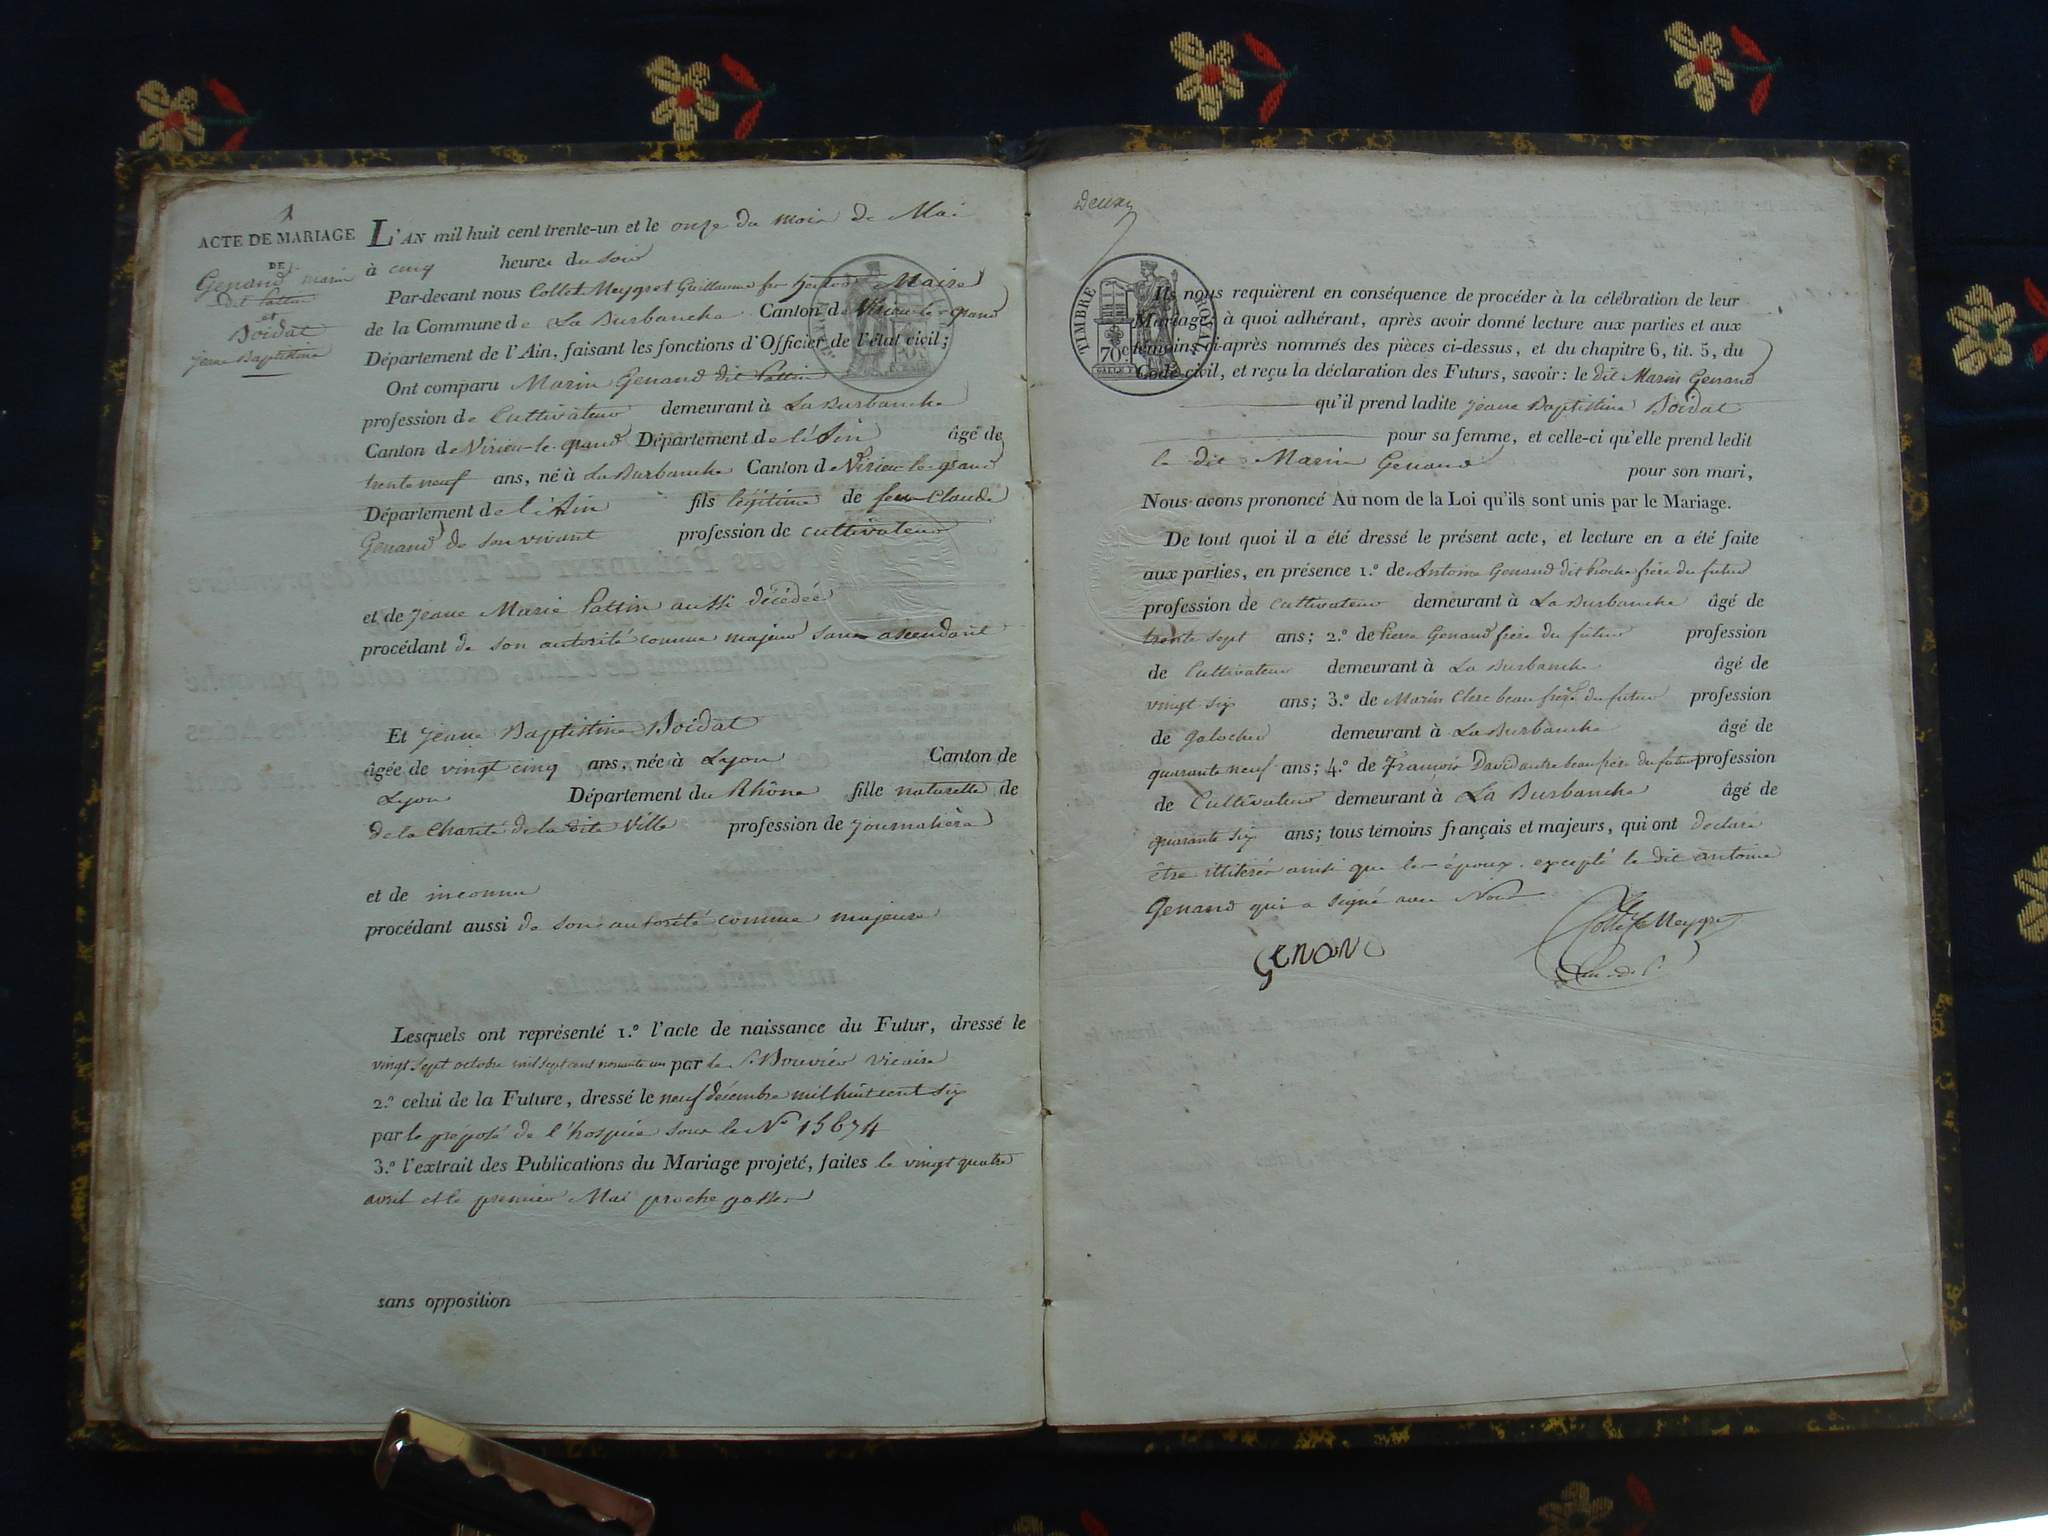 1
ACTE DE MARIAGE
DE
Genand Marin
dit Pattin
et
Boidat
jeane Baptistine
L'AN mil huit cent trente-un et le onze du mois de Mai
à cinq heures du soir
Par-devant nous Collet Meygret Guillaume Maire
de la Commune de La Burbanche Canton de Virieu-le-grand
Département de l'Ain, faisant les fonctions d'Officier de l'état civil;
Ont comparu Marin Genand dit Pattin
profession de Cultivateur demeurant à La Burbanche
Canton de Virieu-le-grand Département de l'Ain âgé de
trente neuf ans, né à La Burbanche Canton de Virieu-le-grand
Département de l'Ain fils légitime de feu Claude
Genand de son vivant profession de cultivateur
et de jeane Marie Pattin aussi décédée
procédant de son autorité comme majeur sans ascendant
Et jeane Baptistine Boidat
âgée de vingt cinq ans, née à Lyon Canton de
Lyon Département du Rhône fille naturelle de
de la Charité de la dite Ville profession de journalière
et de inconnu
procédant aussi de son autorité comme majeure
Lesquels ont représenté 1.º l'acte de naissance du Futur, dressé le
vingt sept octobre mil sept cent nonante un par le S. Bouvier vicaire
2.º celui de la Future, dressé le neuf décembre mil huit cent six
par le préposé de l'hospice sous le Nº 15674
3.º l'extrait des Publications du Mariage projeté, faites le vingt quatre
avril et le premier Mai proche passés
sans opposition
Deux
TIMBRE ROYAL
70 c
Ils nous requièrent en conséquence de procéder à la célébration de leur
Mariage, à quoi adhérant, après avoir donné lecture aux parties et aux
témoins ci-après nommés des pièces ci-dessus, et du chapitre 6, tit. 5, du
Code civil, et reçu la déclaration des Futurs, savoir: le dit Marin Genand
qu'il prend ladite jeane Baptistine Boidat
pour sa femme, et celle-ci qu'elle prend ledit
le dit Marin Genand pour son mari,
Nous avons prononcé Au nom de la Loi qu'ils sont unis par le Mariage.
De tout quoi il a été dressé le présent acte, et lecture en a été faite
aux parties, en présence 1.º de Antoine Genand dit Pioche frère du futur
profession de cultivateur demeurant à La Burbanche âgé de
trente sept ans; 2.º de Pierre Genand frère du futur profession
de Cultivateur demeurant à La Burbanche âgé de
vingt six ans; 3.º de Marin Clerc beau frère du futur profession
de galocher demeurant à La Burbanche âgé de
quarante neuf ans; 4.º de François David autre beau frère du futur profession
de Cultivateur demeurant à La Burbanche âgé de
quarante six ans; tous témoins français et majeurs, qui ont déclaré
être illitérés ainsi que les époux. excepté le dit antoine
Genand qui a signé avec Nous
GENAND
Collet Meygret